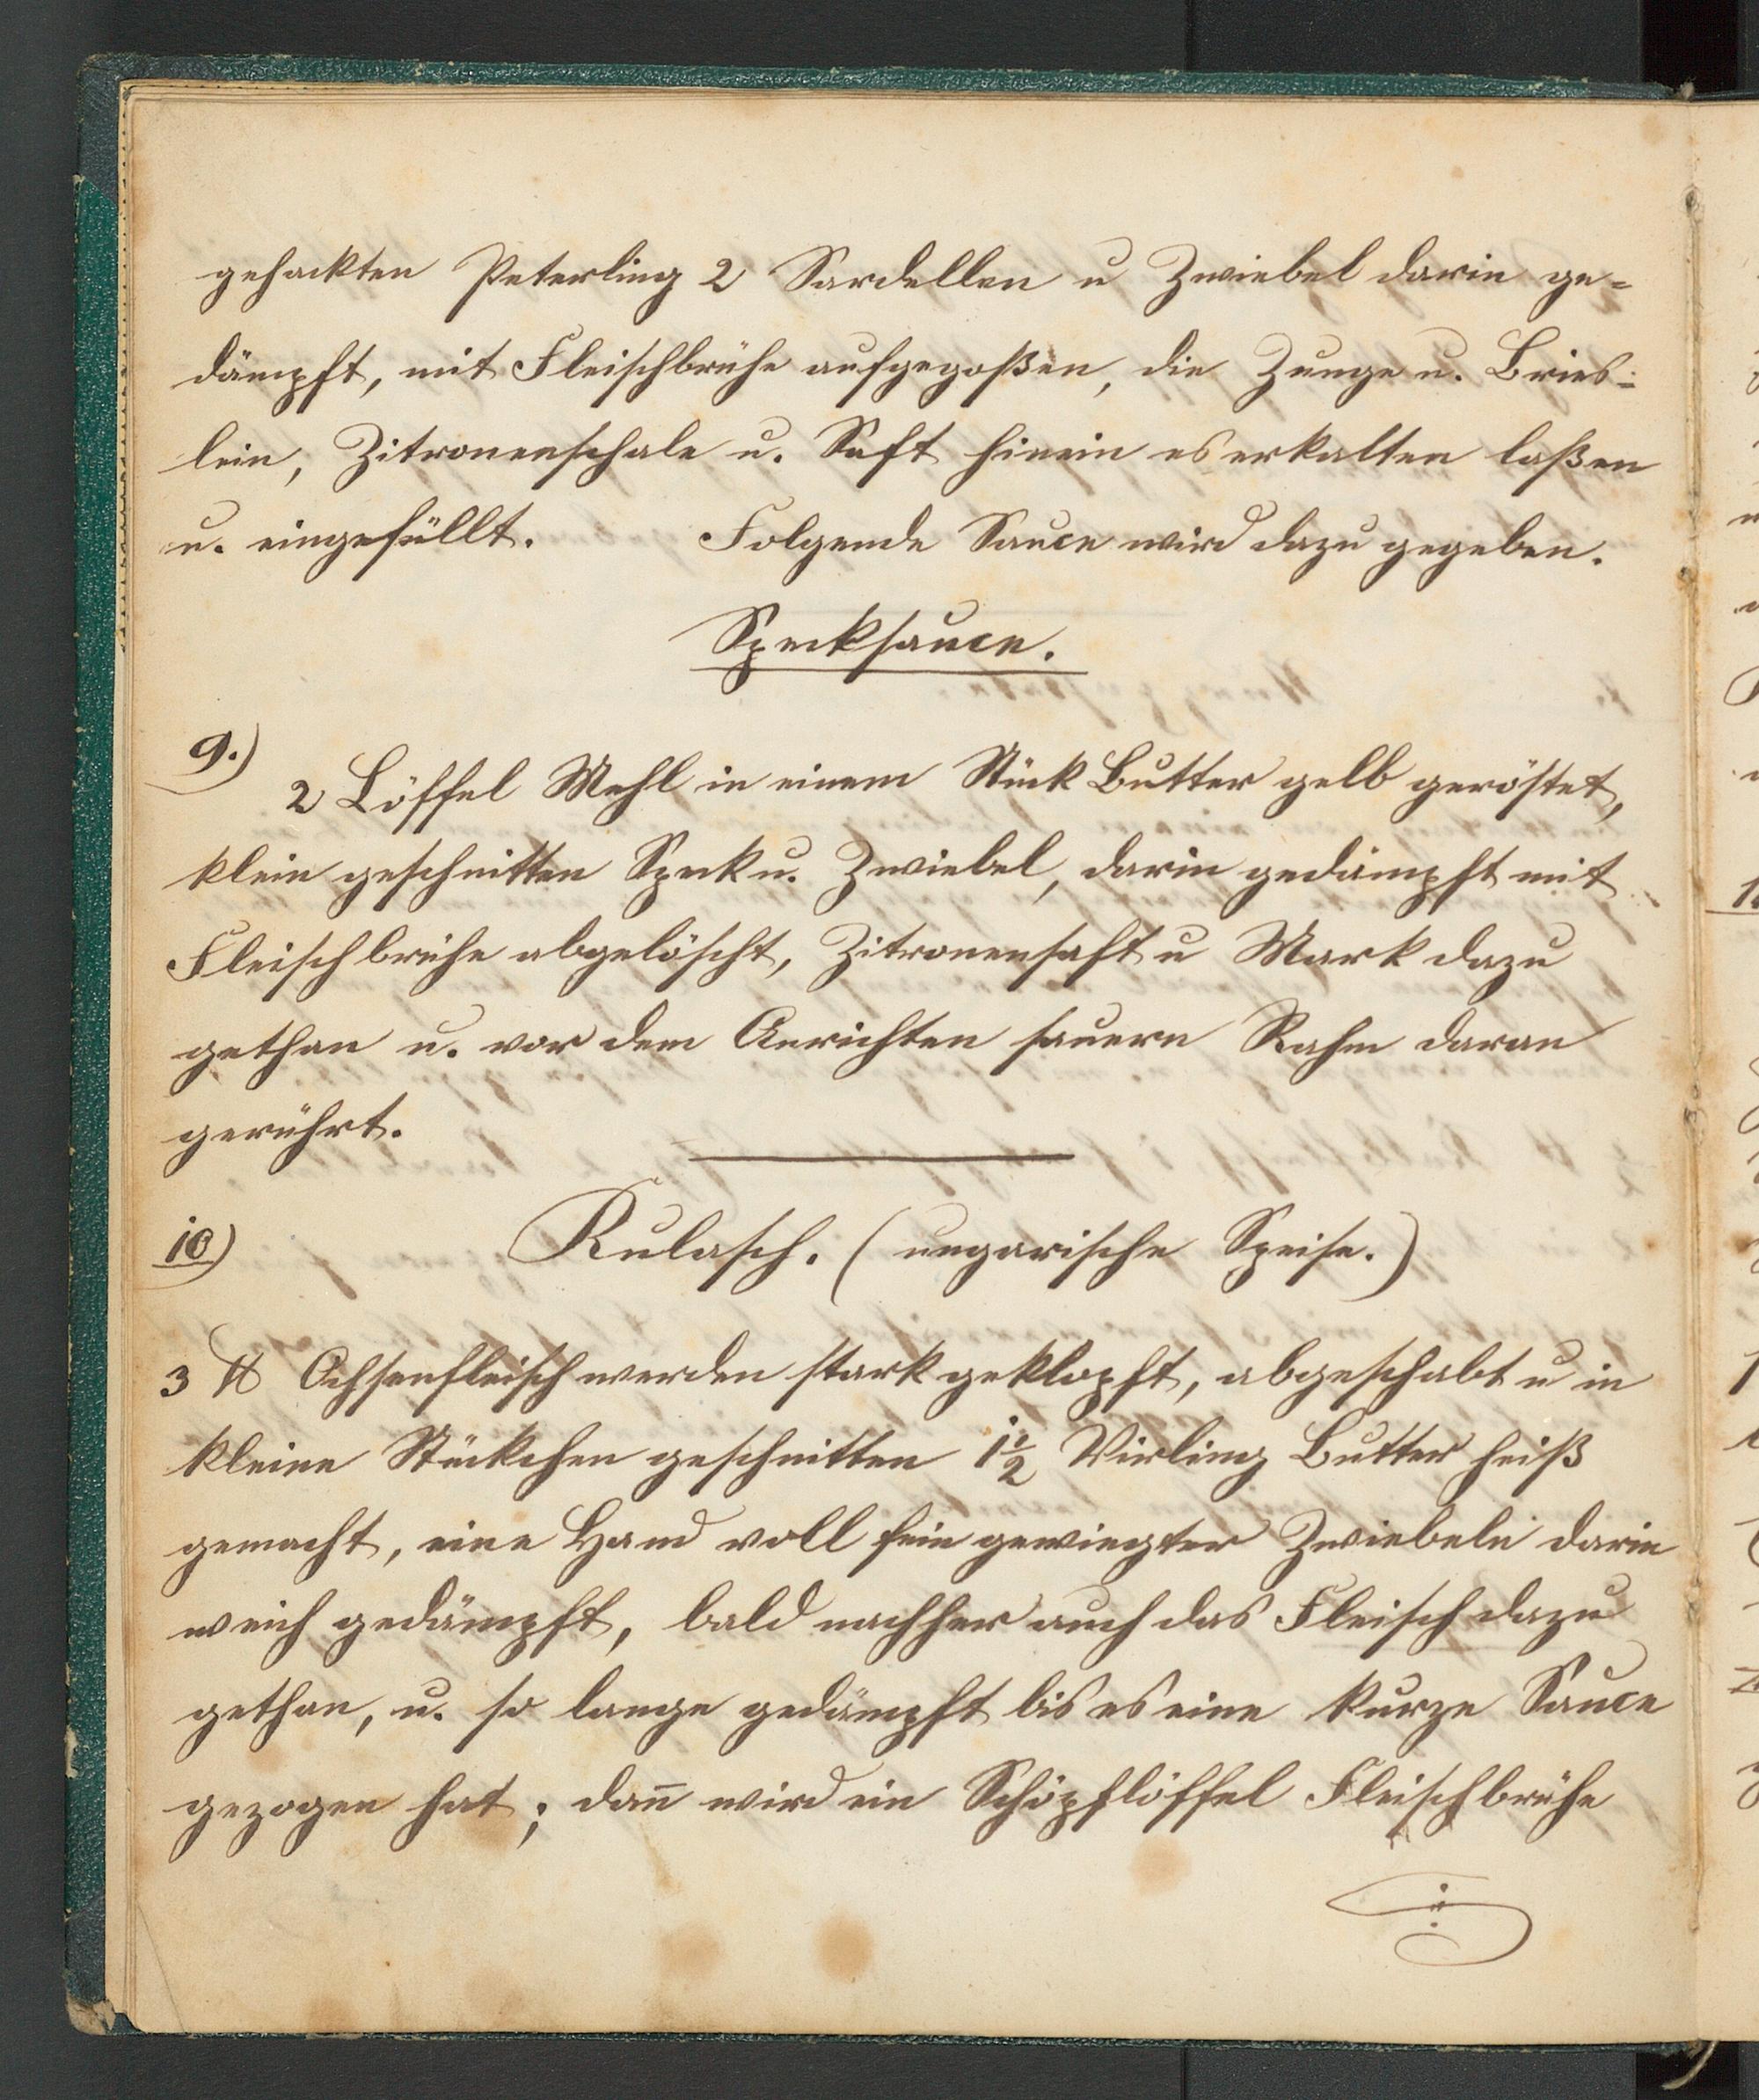 gehackten Peterling 2 Sardellen u Zwiebel darin ge-
dämpft, mit Fleischbrühe aufgegoßen, die Zunge u. Bries-
lein, Zitronenschale u. Saft hinein es erkalten laßen
u. eingefüllt. Folgende Sauce wird dazu gegeben.
Specksauce.
9.)
2 Löffel Mehl in einem Stück Butter gelb geröstet,
klein geschnitten Speck u. Zwiebel, darin gedämpft mit
Fleischbrühe abgelöscht, Zitronensaft u Mark dazu
gethan u. vor dem Anrichten sauern Rahm daran
gerührt.
10) Kulasch. (ungarische Speise.)
3 ℔ Ochsenfleisch werden stark geklopft, abgeschabt u in
kleine Stückchen geschnitten 1½ Virling Butter heiß
gemacht, eine Hand voll fein gewiegter Zwiebeln darin
weich gedämpft, bald nachher auch das Fleisch dazu
gethan, u. so lange gedämpft bis es eine kurze Sauce
gezogen hat; dan̄ wird ein Schöpflöffel Fleischbrühe